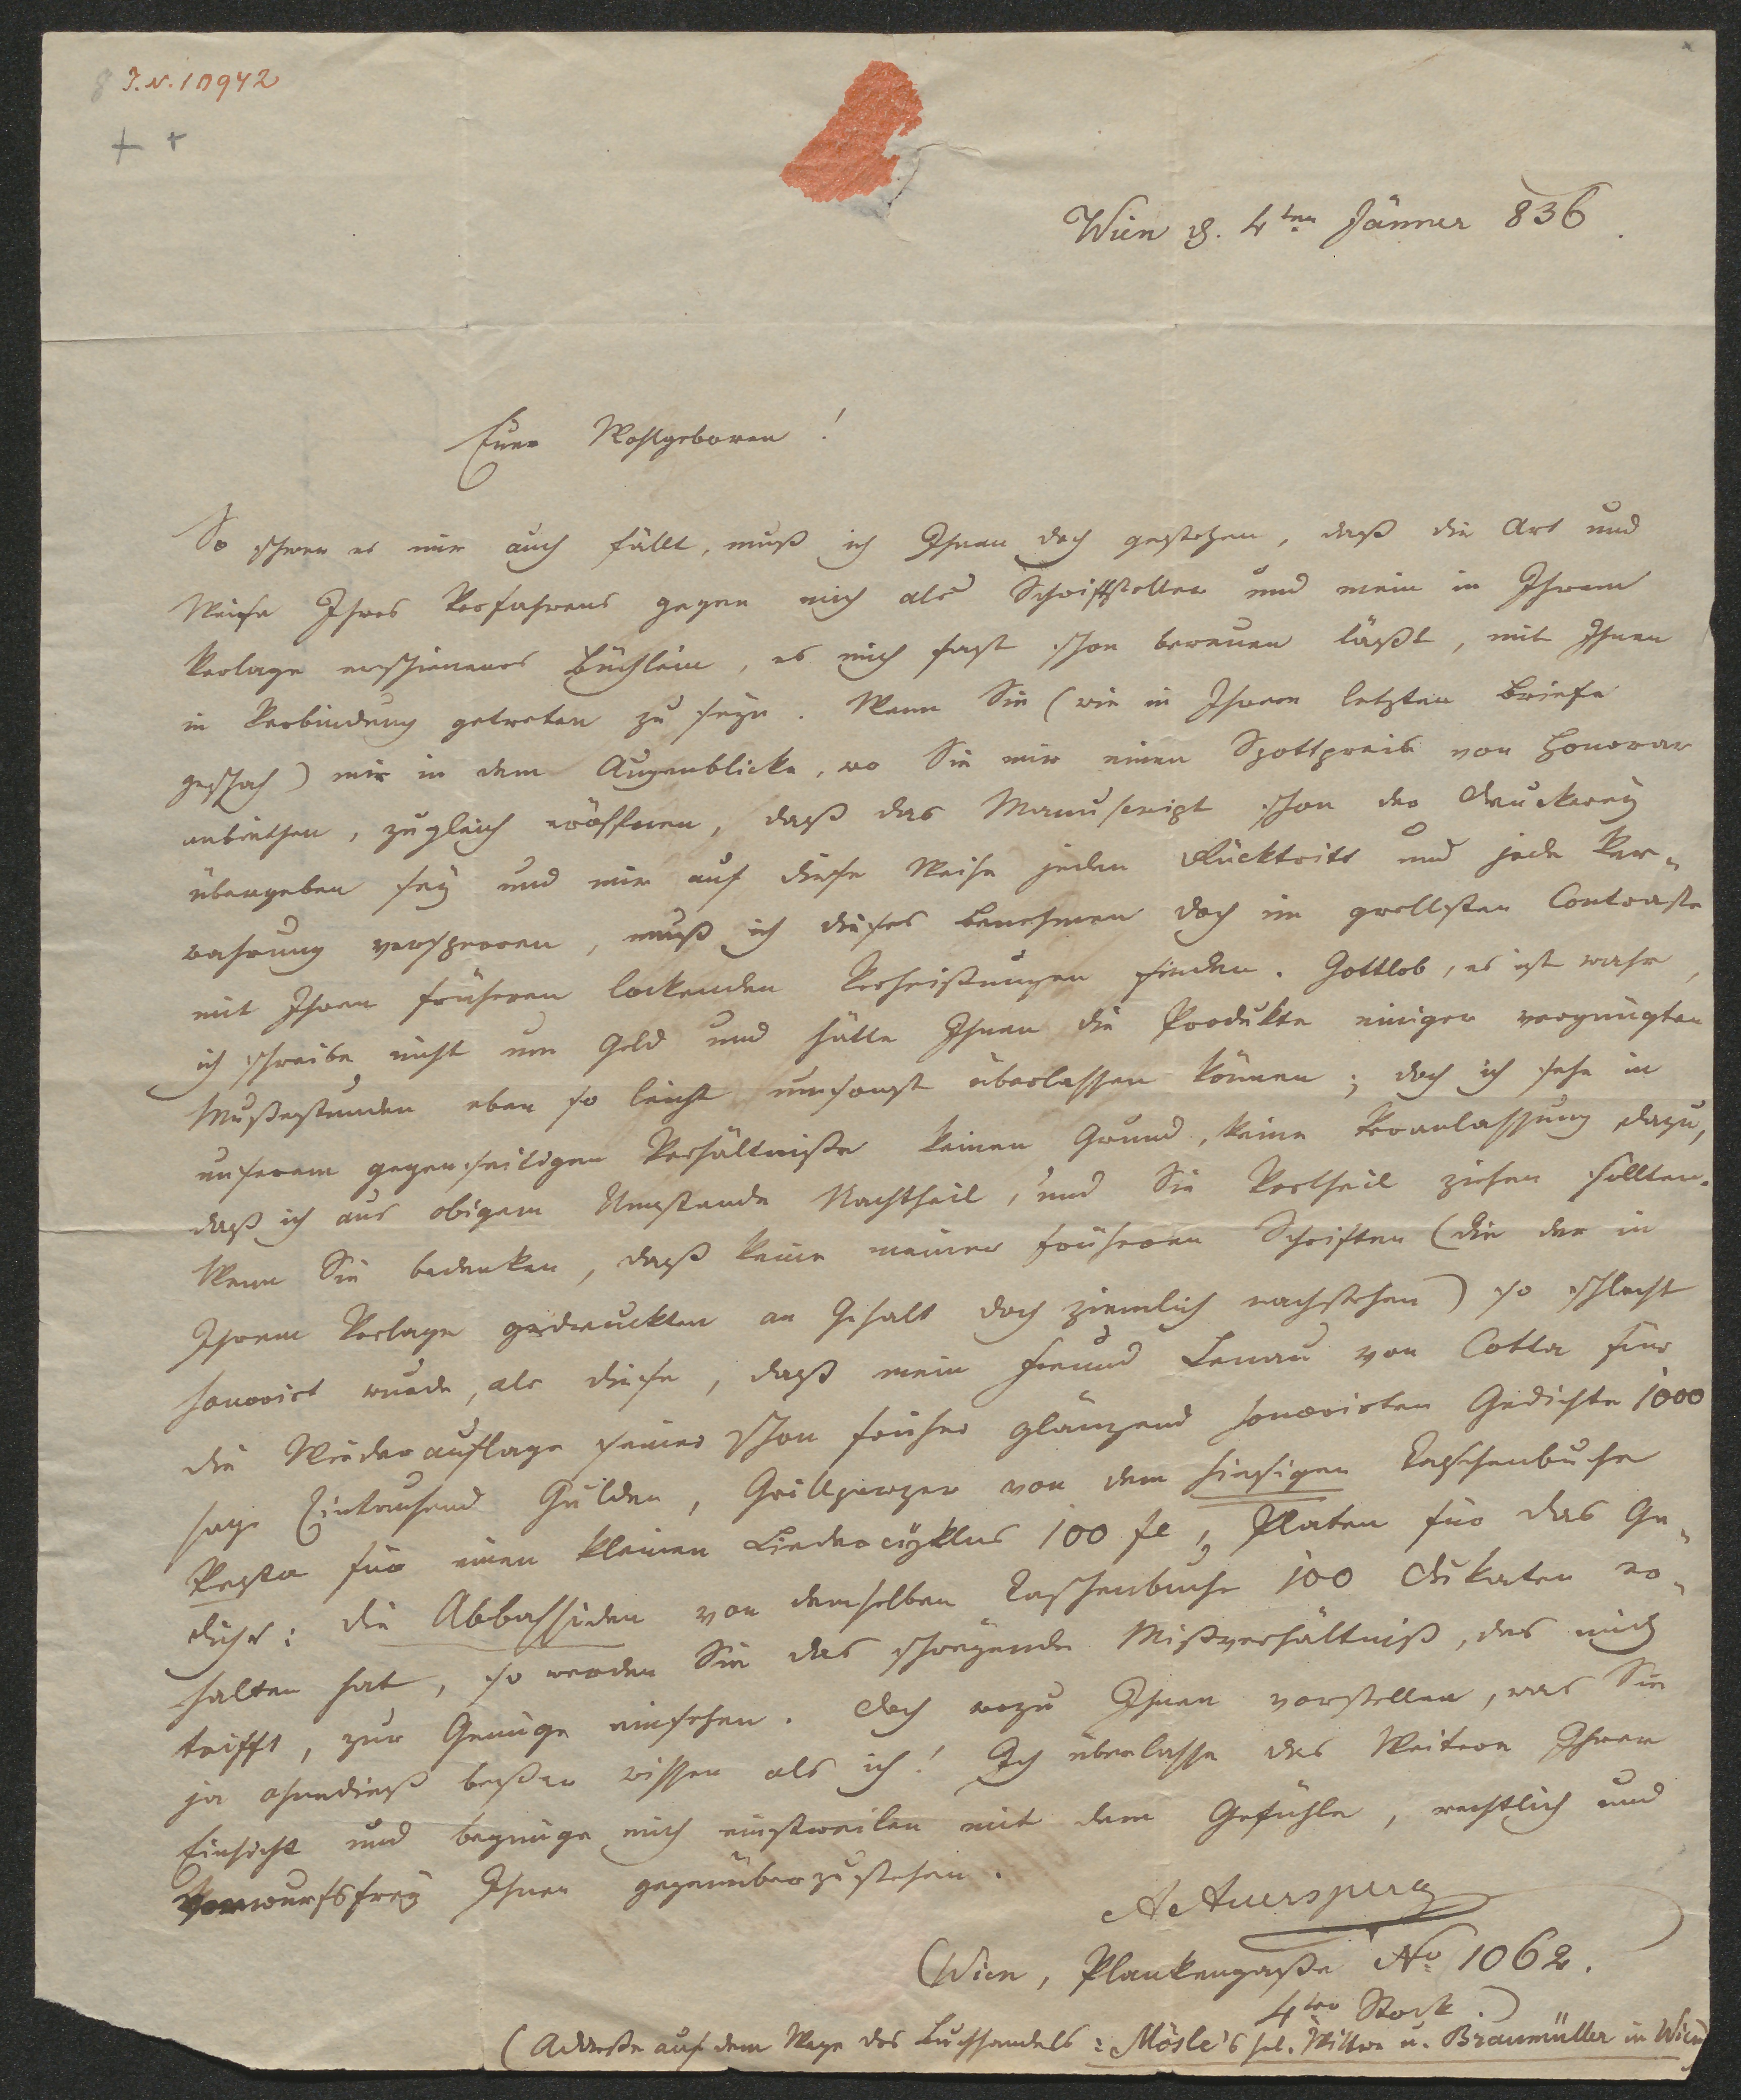 J.N. 10942
Wien d. 4ten Jänner 836.
Euer Wohlgeboren!
So schwer es mir auch fällt, muß ich Ihnen doch gestehen, daß die Art und
Weise Ihres Verfahrens gegen mich als Schriftsteller und mein in Ihrem
Verlage erschienenes Büchlein, es mich fast schon bereuen läßt, mit Ihnen
in Verbindung getreten zu seyn. Wenn Sie (wie in Ihrem letzten Briefe
geschah) mir in dem Augenblicke, wo Sie mir einen Spottpreis von Honorar
anbiethen, zugleich eröffnen, daß das Manuscript schon der Druckerey
übergeben sey und mir auf diese Weise jeden Rücktritt und jede Ver-
wahrung versperren, muß ich dieses Benehmen doch im grellsten Contraste
mit Ihren früheren lockenden Verheißungen finden. Gottlob, es ist wahr,
ich schreibe nicht um Geld und hätte Ihnen die Produkte einiger vergnügten
Mußestunden eben so leicht umsonst überlassen können; doch ich sehe in
unserem gegenseitigen Verhältniße keinen Grund, keine Veranlassung dazu,
daß ich aus obigem Umstande Nachtheil, und Sie Vortheil ziehen sollten.
Wenn Sie bedenken, daß keine meiner früheren Schriften (die der in
Ihrem Verlage gedruckten an Gehalt doch ziemlich nachstehen) so schlecht
honorirt wurde, als diese, daß mein Freund Lenau von Cotta für
die Wiederauflage seiner schon früher glänzend honorirten Gedichte 1000
sage Eintausend Gulden, Grillparzer von dem hiesigen Taschenbuche
Vesta für einen kleinen Liedercyklus 100 fl, Platen für das Ge-
dicht: die Abbassiden von demselben Taschenbuche 100 Dukaten er-
halten hat, so werden Sie das schreyende Mißverhältniß, das mich
trifft, zur Genüge einsehen. Doch wozu Ihnen vorstellen, was Sie
ja ohnedieß beßer wissen als ich! Ich überlasse das Weitere Ihrer
Einsicht und begnüge mich einstweilen mit dem Gefühle, rechtlich und
vorwurfsfrey Ihnen gegenüberzustehen.
A Auersperg
(Wien, Plankengaße No 1062.
4ter Stock.)
(Addreße auf dem Wege des Buchhandels: Mösle's sel. Wittwe u. Braumüller in Wien)